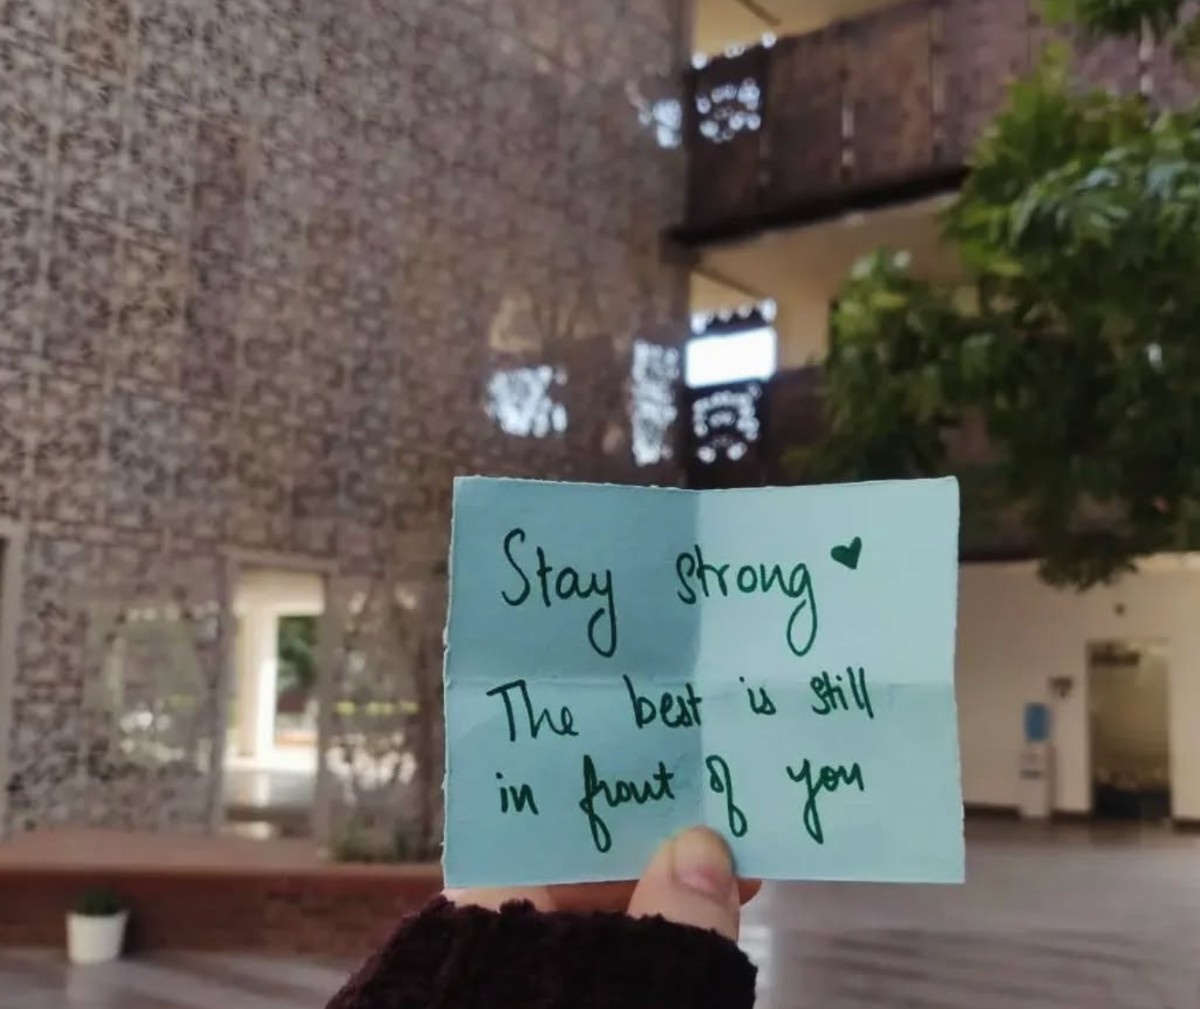 Stay strong ♥
The best is still
in front of you